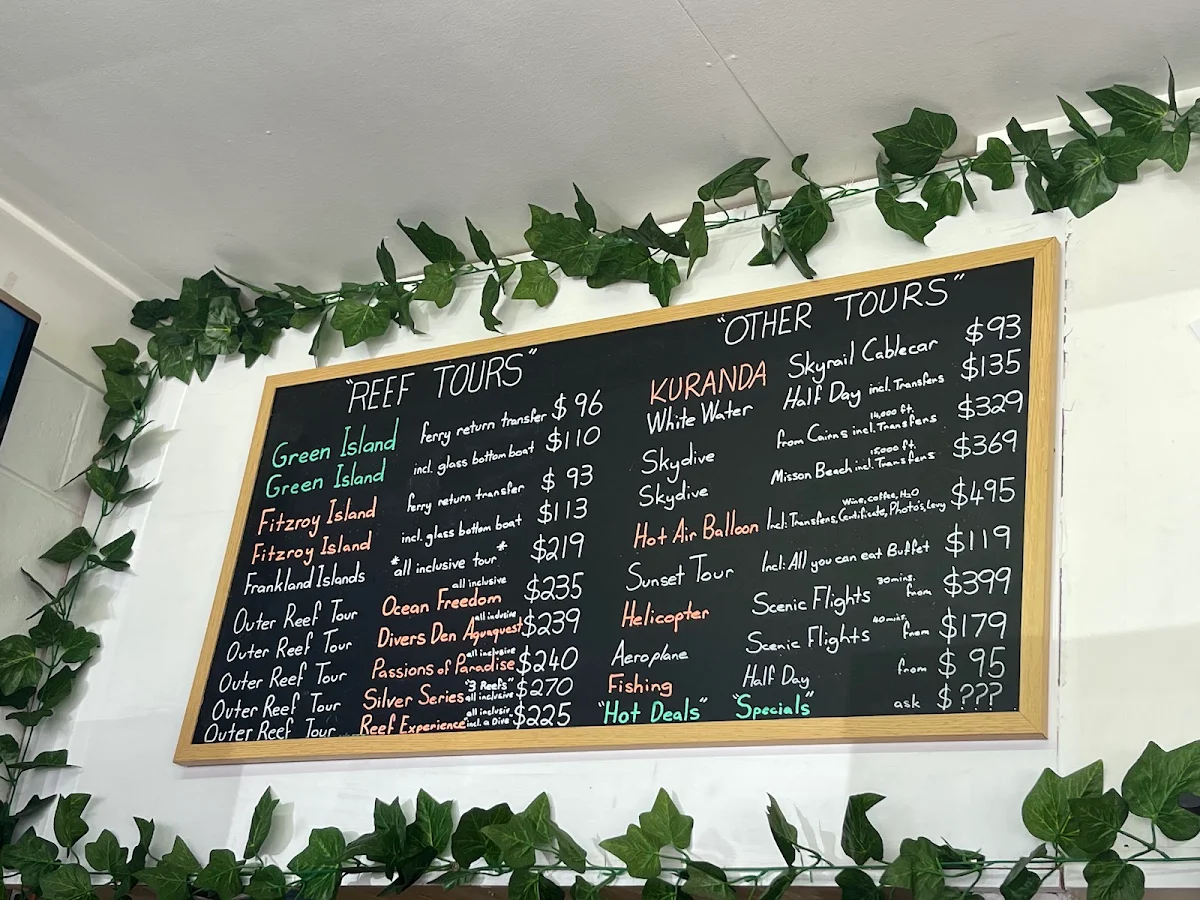 "REEF TOURS"
Green Island ferry return transfer $96
Green Island incl. glass bottom boat $110
Fitzroy Island ferry return transfer $93
Fitzroy Island incl. glass bottom boat $113
Frankland Islands *all inclusive tour* $219
Outer Reef Tour Ocean Freedom all inclusive $235
Outer Reef Tour Divers Den Aquaquest all inclusive $239
Outer Reef Tour Passions of Paradise all inclusive $240
Outer Reef Tour Silver Series "3 Reefs" all inclusive $270
Outer Reef Tour Reef Experience all inclusiv incl. a Dive $225
"OTHER TOURS"
KURANDA Skyrail Cablecar $93
White Water Half Day incl. Transfers $135
Skydive from Cairns 14,000 ft. incl. Transfers $329
Skydive Misson Beach 15,000 ft. incl. Transfers $369
Hot Air Balloon Incl: Transfers, Certificate, Photo's, Levy Wine, coffee, H₂O $495
Sunset Tour Incl: All you can eat Buffet $119
Helicopter Scenic Flights 30mins. from $399
Aeroplane Scenic Flights 40 mins. from $179
Fishing Half Day from $95
"Hot Deals" "Specials" ask $???